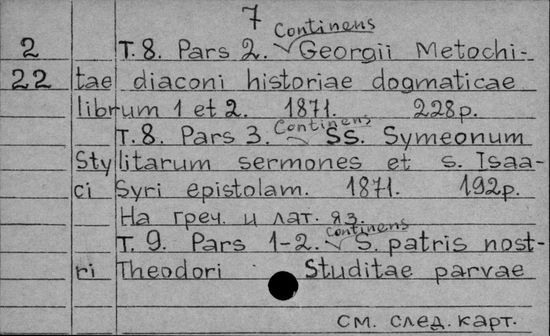 7
2 T. 8. Pars 2. Continens Georgii Metochi-
22 tae diaconi historiae dogmaticae
librum 1 et 2. 1871. 228p.
T. 8. Pars 3. Continens SS. Symeonum
Stylitarum sermones et s. Isaa-
ci Syri epistolam. 1871. 192p.
На греч. и лат. яз.
T. 9. Pars 1-2. Continens S. patris nost-
ri Theodori Studitae parvae
см. след. карт.